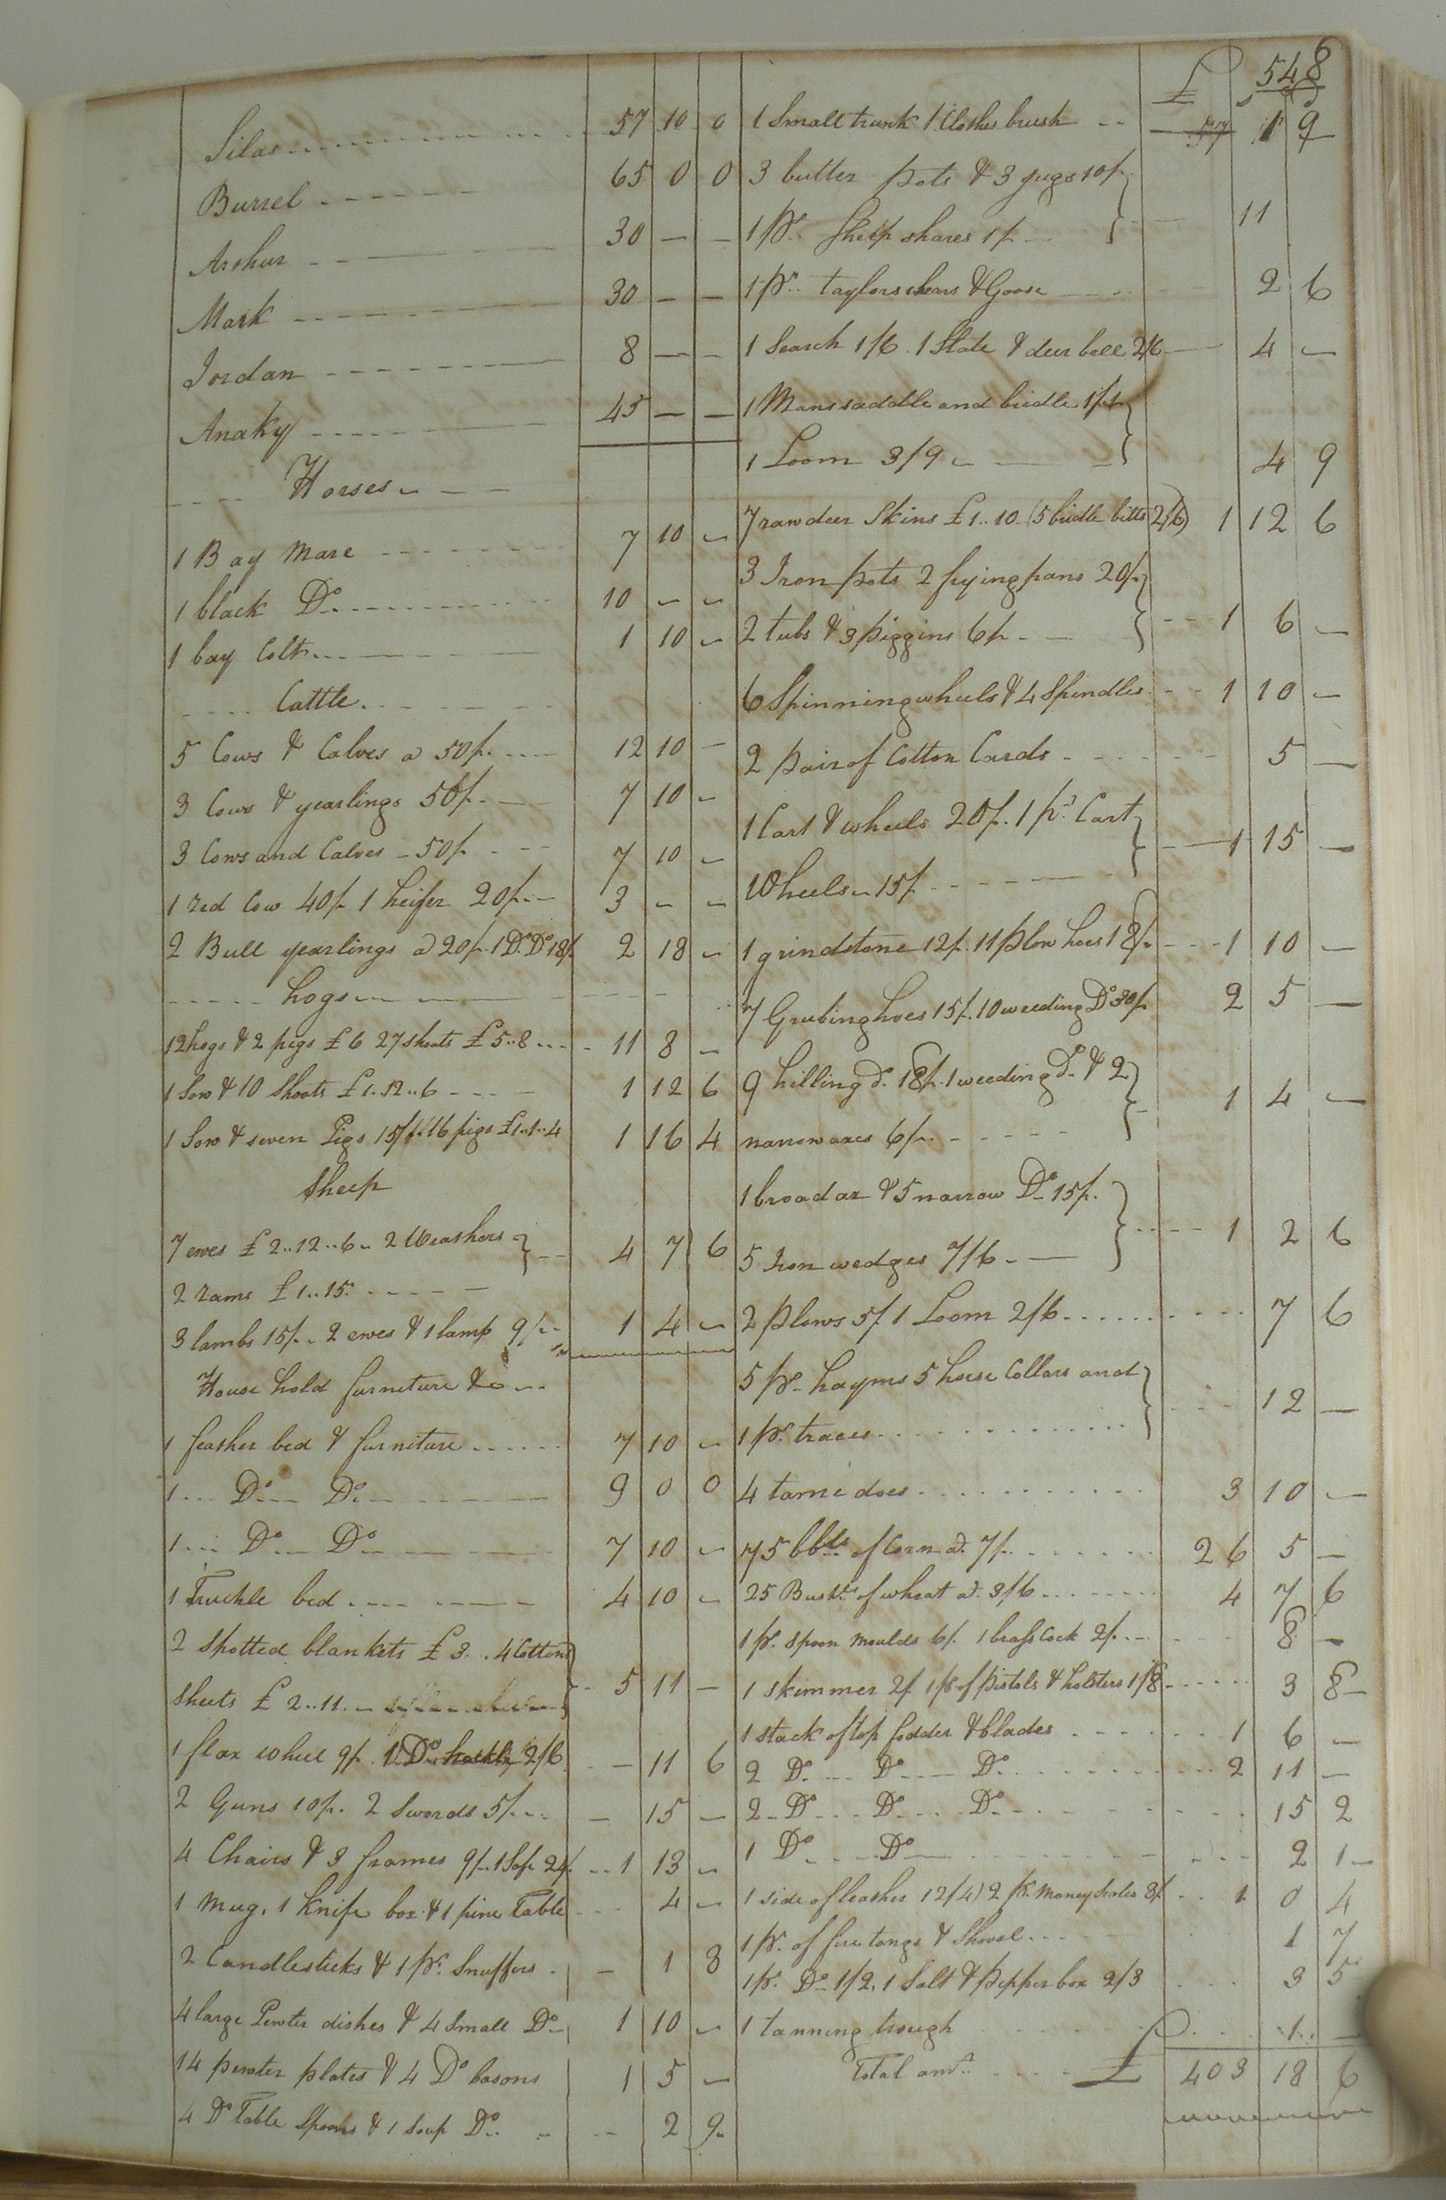 548
Silas 57 10 0
Burrel 65 0 0
Arthur 30 — —
Mark 30 — —
Jordan 8 — —
Anaky 45 — —
Horses
1 Bay Mare 7 10 —
1 black Do 10 — —
1 bay Colt 1 10 —
Cattle
5 Cows & Calves a 50/. 12 10 —
3 Cows & yearlings 50/. 7 10 —
3 Cows and Calves 50/ 7 10 —
1 red Cow 40/. 1 heifer 20/. 3 — —
2 Bull yearlings a 20/. 1 Do Do 18/ 2 18 —
hogs
12 hogs & 2 pigs £6 27 shoats £5..8 11 8 —
1 Sow & 10 Shoats £1..12..6 1 12 6
1 Sow & seven Pigs 15/. 16 pigs £1..1..4 1 16 4
Sheep
7 ewes £2..12..6 2 Weathers
2 rams £1..15 4 7 6
3 lambs 15/. 2 ewes & 1 lamp 9/. 1 4 —
House hold furneture &c
1 feather bed & furniture 7 10 —
1 Do Do 9 0 0
1 Do Do 7 10 —
1 Truckle bed 4 10 —
2 Spotted blankets £3. 4 Cotton
sheets £2..11 5 11 —
1 flax wheel 9/. 1 Do hackle 2/6 — 11 6
2 Guns 10/. 2 Swords 5/. — 15 —
4 Chairs & 3 frames 9/. 1 Safe 24/. 1 13 —
1 Mug, 1 Knife box & 1 pine Table 4 —
2 Candlesticks & 1 pr. Snuffers — 1 8
4 large Pewter dishes & 4 Small Do 1 10 —
14 pewter plates & 4 Do basons 1 5 —
4 Do Table Spoons & 1 Soup Do 2 9
£ s d
1 Small trunk 1 Cloths brush 1 9
3 butter pots & 3 jugs 10/.
1 pr. Sheip shares 1/. 11
1 pr. taylors shears & Goose 2 6
1 Search 1/6. 1 Slate & deer bell 2/6 4 —
1 Mans saddle and bridle 1/.
1 Loom 3/9 4 9
7 raw deer Skins £1..10 (5 bridle bitts 2/6) 1 12 6
3 Iron pots 2 frying pans 20/.
2 tubs & 3 piggins 6/. 1 6 —
6 Spinning wheels & 4 Spindles 1 10 —
2 pair of Cotton Cards 5 —
1 Cart & wheels 20/. 1 pr. Cart
Wheels 15/. 1 15 —
1 grindstone 12/. 11 plow hoes 18/. 1 10 —
7 Grubing hoes 15/. 10 weeding Do 30/. 2 5 —
9 hilling do. 18/. 1 weeding Do. & 2
narrow axes 6/. 1 4 —
1 broad ax & 5 narrow Do 15/.
5 Iron wedges 7/6 1 2 6
2 plows 5/. 1 Loom 2/6 7 6
5 pr. hayms 5 horse Collars and
1 pr. traces 12 —
4 tame does 3 10 —
75 bbls of Corn a. 7/. 26 5 —
25 Bush. of wheat a. 3/6 4 7 6
1 pr. spoon moulds 6/. 1 brass Cock 2/. 8 —
1 skimmer 2/. 1 pr of pistols & holsters 1/8 3 8
1 stack of top fodder & blades 1 6 —
2 Do Do Do 2 11 —
2 Do Do Do 15 2
1 Do Do 2 1
1 side of leather 12/4) 2 pr. Money Scales 8/. 1 0 4
1 pr. of fire tongs & Shovel 1 7
1 pr. Do 1/2, 1 Salt & Pepper box 2/3 3 5
1 tanning trough 1 —
Total amt. £ 403 18 6